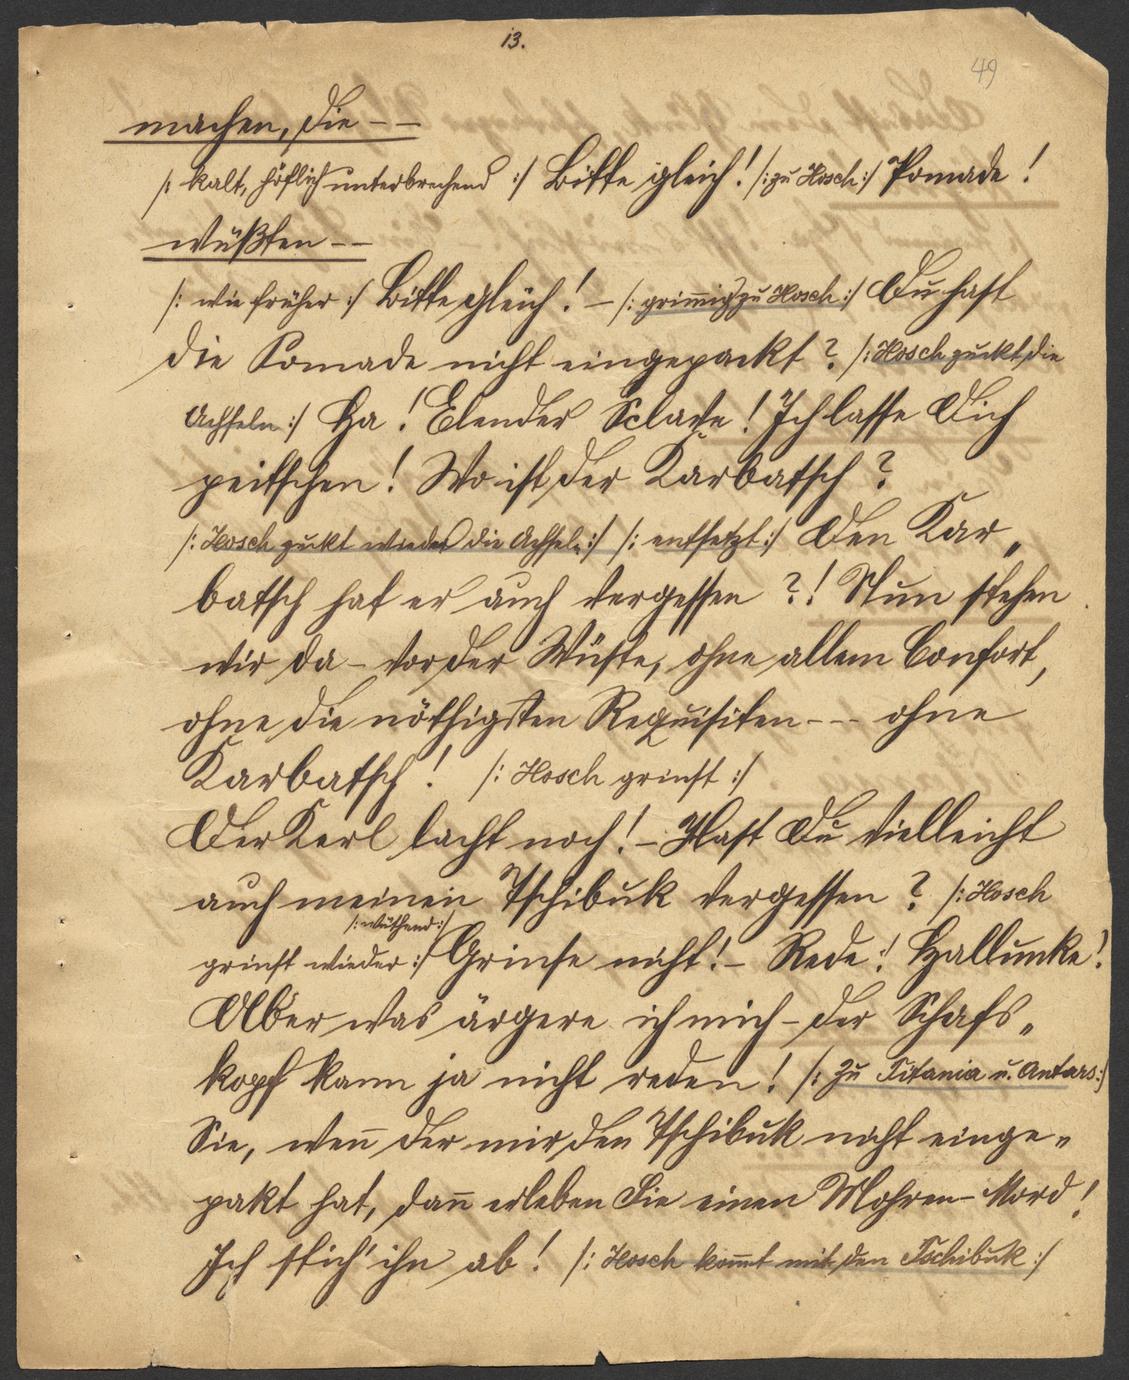 13.
49
machen, die – –
/: kalt, höflich unterbrechend :/ Bitte gleich! /: zu Hosch :/ Pomade!
wüßten – –
/: wie früher :/ Bitte gleich! – /: grim̅ig zu Hosch :/ Du hast
die Pomade nicht eingepackt? /: Hosch zuckt die
Achseln :/ Ha! Elender Sclave! Ich lasse Dich
peitschen! Wo ist der Karbatsch?
/: Hosch zukt wieder die Achseln :/ /: entsetzt :/ Den Kar„
batsch hat er auch vergessen?! Nun stehen
wir da – vor der Wüste, ohne allem Confort,
ohne die nöthigsten Requisiten – – – ohne
Karbatsch! /: Hosch grinst :/
Der Kerl lacht noch! – Hast Du vielleicht
auch meinen Tschibuk vergessen? /: Hosch
/: wüthend :/
grinst wieder :/ Grinse nicht! – Rede! Hallunke!
Aber was ärgere ich mich – der Schafs„
kopf kann ja nicht reden! /: Zu Titania u. Antars :/
Sie, wen̅ der mir den Tschibuk nicht einge„
pakt hat, dan̅ erleben Sie einen Mohren-Mord!
Ich stich' ihn ab! /: Hosch kom̅t mit den Tschibuk :/